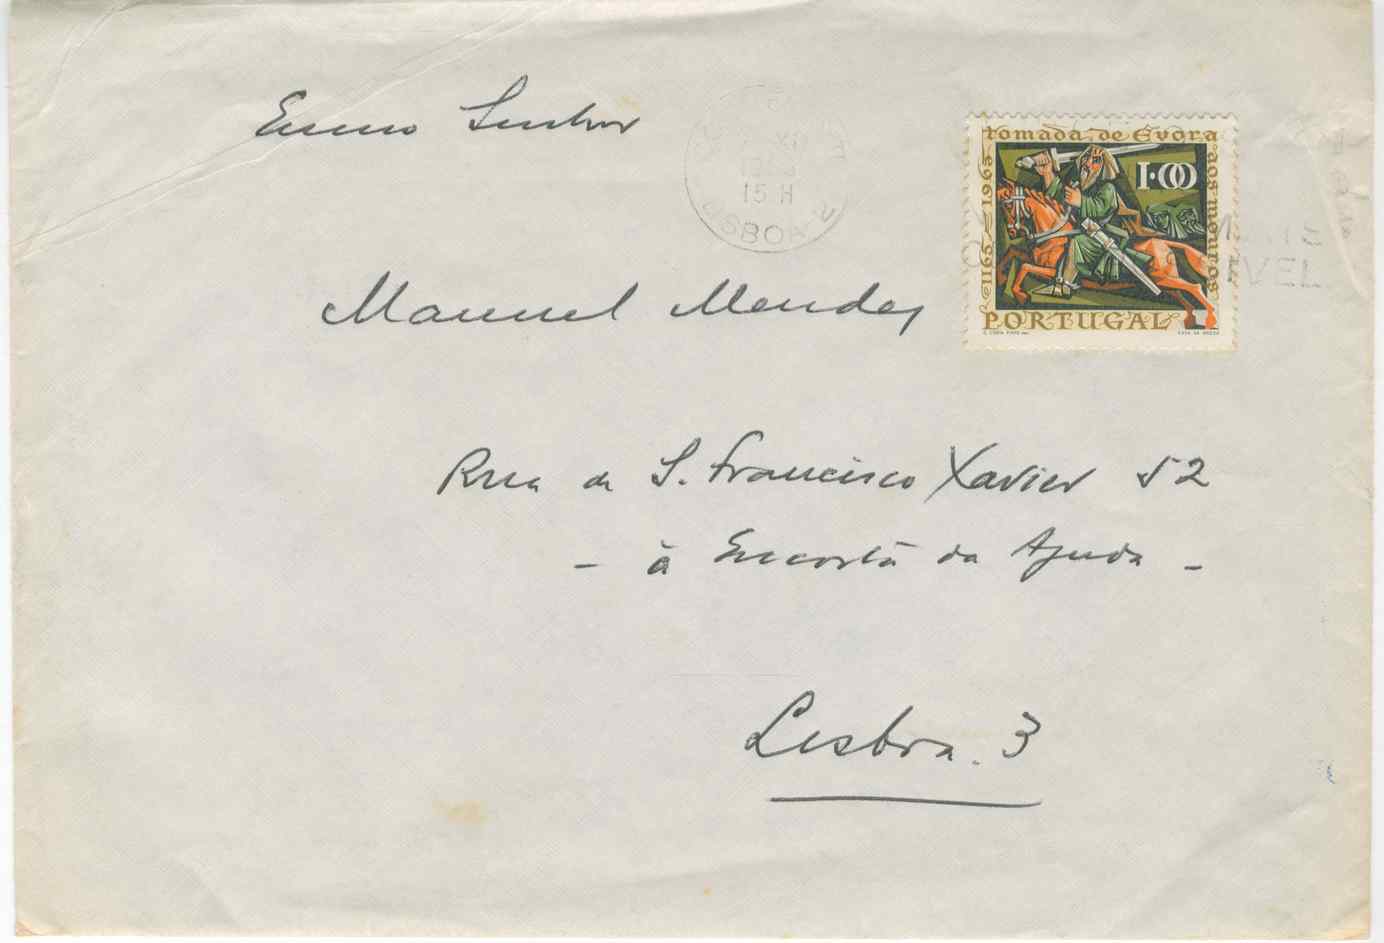 Exmo Senhor
15 H
LISBOA
tomada de Évora
aos mouros
1165 — 1965
1.00
PORTUGAL
Manuel Mendes
Rua de S. Francisco Xavier 52
- à Encosta da Ajuda -
Lisboa. 3